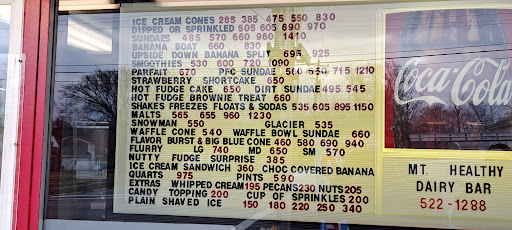 ICE CREAM CONES 285 385 475 550 830
DIPPED OR SPRINKLED 505 605 690 970
SUNDAES 485 570 660 960 1410
BANANA BOAT 660 830
UPSIDE DOWN BANANA SPLIT 695 925
SMOOTHIES 530 600 720 1090
PARFAIT 670 PFC SUNDAE 560 650 715 1210
STRAWBERRY SHORTCAKE 650
HOT FUDGE CAKE 650 DIRT SUNDAE 495 545
HOT FUDGE BROWNIE TREAT 660
SHAKES FREEZES FLOATS & SODAS 535 605 895 1150
MALTS 565 655 960 1230
SNOWMAN 550 GLACIER 535
WAFFLE CONE 540 WAFFLE BOWL SUNDAE 660
FLAVOR BURST & BIG BLUE CONE 460 580 690 940
FLURRY LG 740 MD 650 SM 570
NUTTY FUDGE SURPRISE 385
ICE CREAM SANDWICH 360 CHOC COVERED BANANA
QUARTS 975 PINTS 590
EXTRAS WHIPPED CREAM 195 PECANS 230 NUTS 205
CANDY TOPPING 200 CUP OF SPRINKLES 200
PLAIN SHAVED ICE 150 180 220 250 340
Coca-Cola
MT. HEALTHY
DAIRY BAR
522-1288